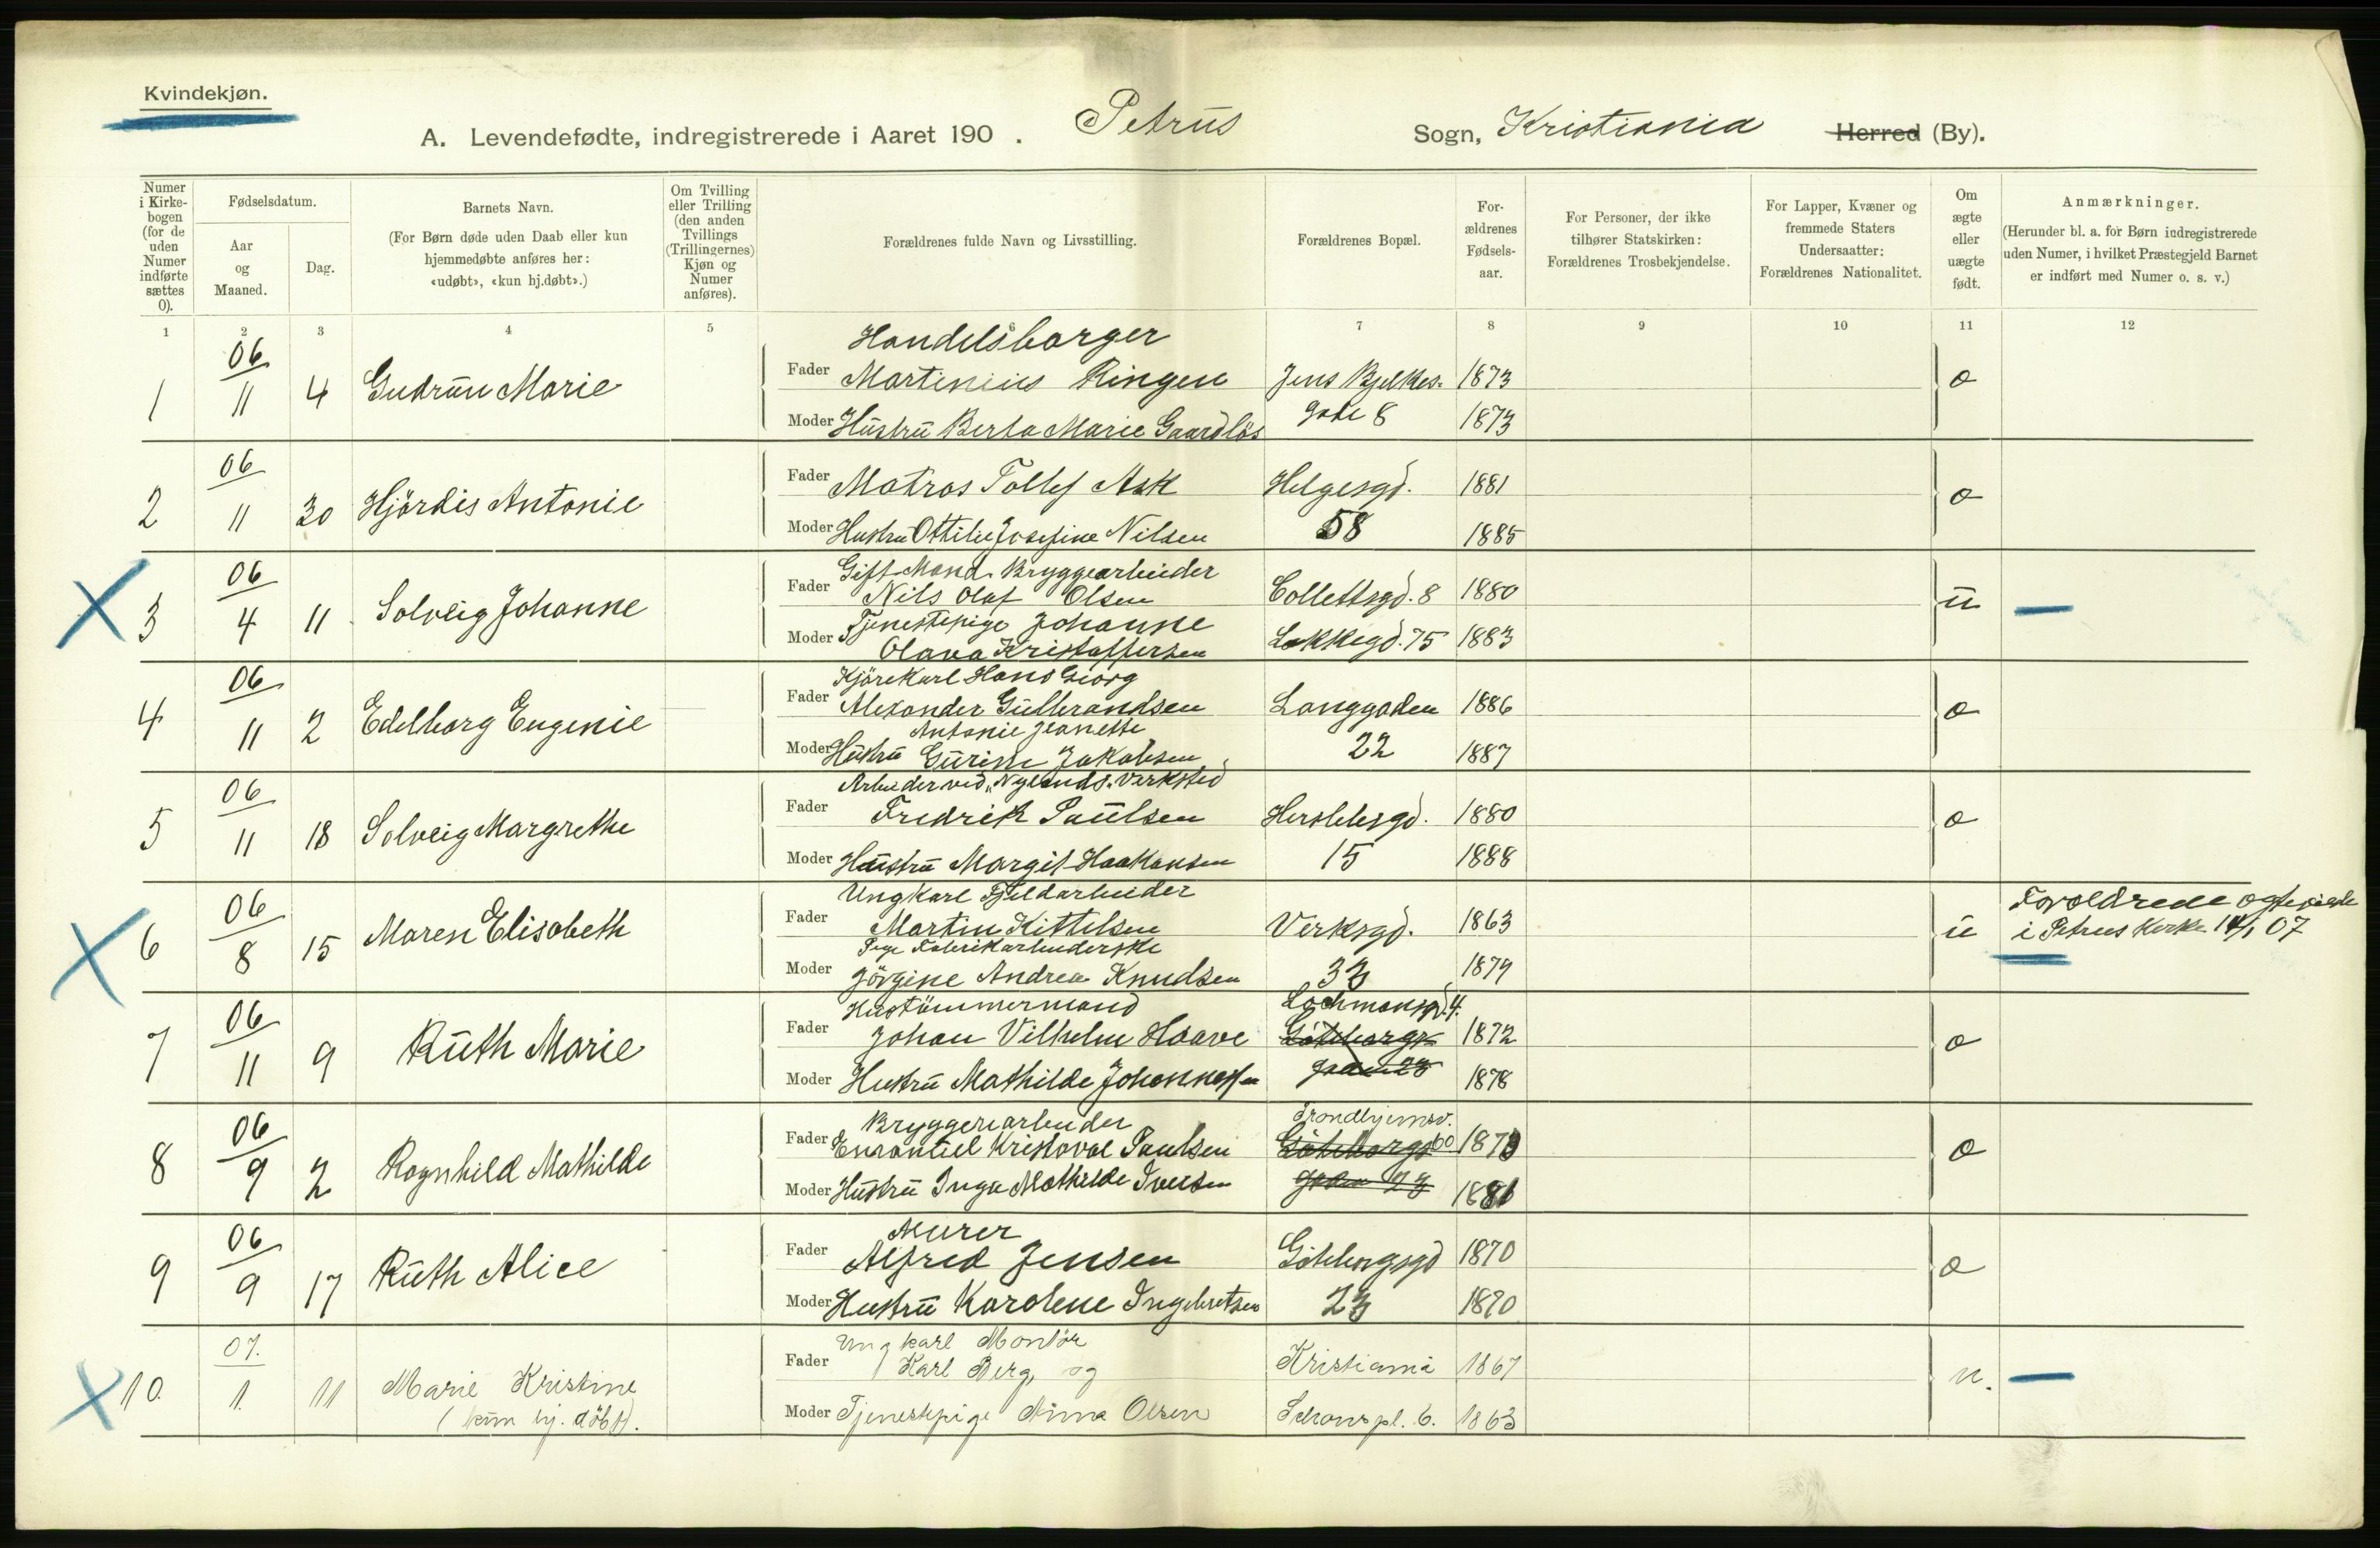 Kvindekjøn.
A. Levendefødte, indregistrerede i Aaret 190 . Petrus Sogn, Kristiania Herred (By).
Numer i Kirkebogen (for de uden Numer indførte sættes 0).
Fødselsdatum.
Aar og Maaned.
Dag.
Barnets Navn.
(For Børn døde uden Daab eller kun hjemmedøbte anføres her: «udøbt», «kun hj.døbt».)
Om Tvilling eller Trilling (den anden Tvillings (Trillingernes) Kjøn og Numer anføres).
Forældrenes fulde Navn og Livsstilling.
Forældrenes Bopæl.
Forældrenes Fødselsaar.
For Personer, der ikke tilhører Statskirken: Forældrenes Trosbekjendelse.
For Lapper, Kvæner og fremmede Staters Undersaatter: Forældrenes Nationalitet.
Om ægte eller uægte født.
Anmærkninger.
(Herunder bl. a. for Børn indregistrerede uden Numer, i hvilket Præstegjeld Barnet er indført med Numer o. s. v.)
1 2 3 4 5 6 7 8 9 10 11 12
Handelsborger
1 06/11 4 Gudrun Marie Fader Martinius Ringen Jens Bjelkes- 1873 æ
Moder Hustru Berta Marie Gaardløs gade 8 1873
2 06/11 30 Hjördis Antonie Fader Matros Tollef Ask Helgesgd. 1881 æ
Moder Hustru Ottilie Josefine Nilsen 58 1885
Gift Mand Bryggearbeider
3 06/4 11 Solveig Johanne Fader Nils Olaf Olsen Collettsgd. 8 1880 u
Moder Tjenestepige Johanne Løkkegd. 75 1883
Olava Kristoffersen
Kjörekarl Hans Georg
4 06/11 2 Edelborg Eugenie Fader Alexander Gulbrandsen Langgaden 1886 æ
Antonie Jeanette
Moder Hustru Gurine Jakobsen 22 1887
Arbeider ved "Nylands" Verksted
5 06/11 18 Solveig Margrethe Fader Fredrik Paulsen Herslebsgd. 1880 æ
Moder Hustru Margit Haakonsen 15 1888
Ungkarl Fjeldarbeider
6 06/8 15 Maren Elisabeth Fader Martin Kittelsen Verksgd. 1863 u Forældrene ægteviede
Pige Fabrikarbeiderske i Petrus Kirke 14/1 07
Moder Jörgine Andrea Knudsen 33 1879
Hustömmermand Lochmansgd. 4.
7 06/11 9 Ruth Marie Fader Johan Vilhelm Haave Göteborgs- 1872 æ
Moder Hustru Mathilde Johannessen gaden 23 1878
Bryggeriarbeider Trondhjemsv.
8 06/9 2 Ragnhild Mathilde Fader Emanuel Kristoval Paulsen Göteborgs 60 187 æ
Moder Hustru Inga Mathilde Iversen gaden 23 1881
Murer
9 06/9 17 Ruth Alice Fader Alfred Jensen Göteborgsgd 1870 æ
Moder Hustru Karolene Ingebretsen 23 1870
Ungkarl Montör
10. 07./1. 11 Marie Kristine Fader Karl Berg, og Kristiania 1867 u.
(kun hj. döbt). Moder Tjenestepige Anna Olsen Schouspl. 6. 1863